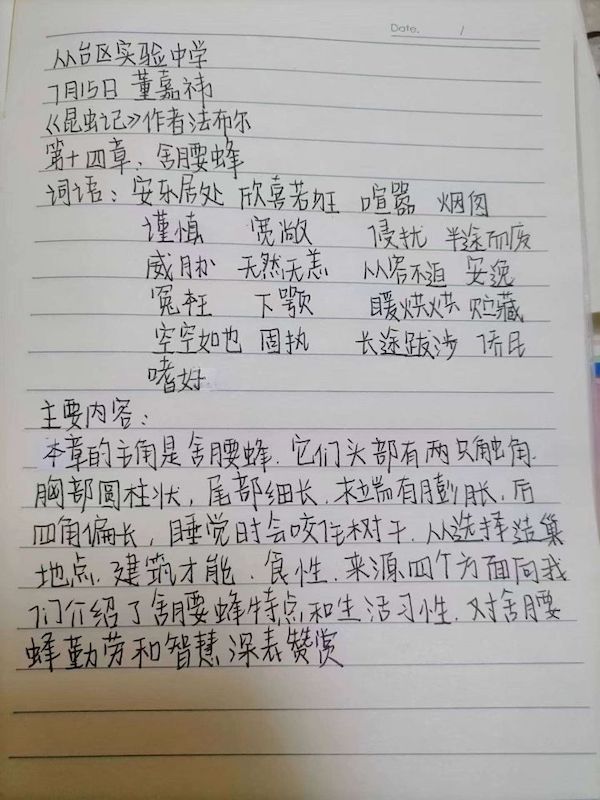 Date.        /
从台区实验中学
7月15日 董嘉祎
《昆虫记》作者法布尔
第十四章：舍腰蜂
词语：安乐居处 欣喜若狂 喧嚣 烟囱
谨慎 宽敞 侵扰 半途而废
威胁 无然无恙 从容不迫 安逸
冤枉 下颚 暖烘烘 贮藏
空空如也 固执 长途跋涉 侨民
嗜好
主要内容：
本章的主角是舍腰蜂.它们头部有两只触角.
胸部圆柱状，尾部细长，末端有膨胀，后
四角偏长，睡觉时会咬住树干.从选择造巢
地点.建筑才能.食性.来源四个方面向我
们介绍了舍腰蜂特点和生活习性.对舍腰
蜂勤劳和智慧深表赞赏